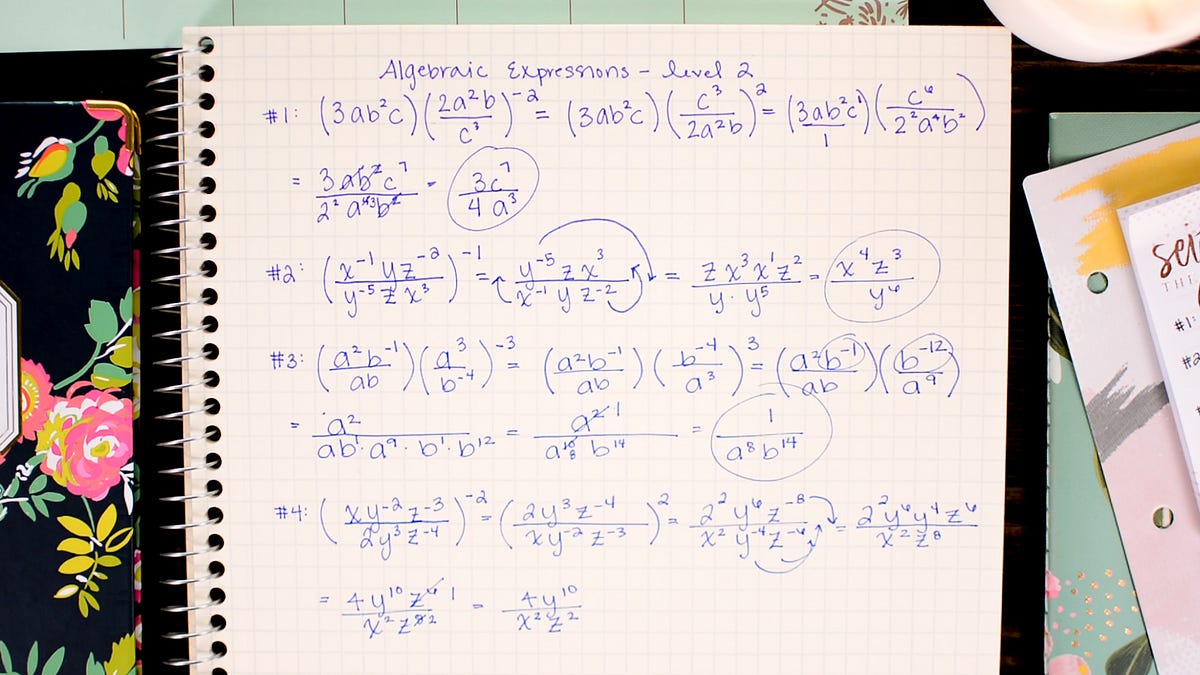 Algebraic Expressions - level 2
#1: (3ab²c)(2a²b/c³)⁻² = (3ab²c)(c³/2a²b)² = (3ab²c¹/1)(c⁶/2²a⁴b²)
= 3ab²c⁷/2²a⁴³b² = 3c⁷/4a³
#2: (x⁻¹yz⁻²/y⁻⁵zx³)⁻¹ = y⁻⁵zx³/x⁻¹yz⁻² = zx³x¹z²/y·y⁵ = x⁴z³/y⁶
#3: (a²b⁻¹/ab)(a³/b⁻⁴)⁻³ = (a²b⁻¹/ab)(b⁻⁴/a³)³ = (a²b⁻¹/ab)(b⁻¹²/a⁹)
= a²/ab¹·a⁹·b¹·b¹² = a² 1/a¹⁰₈b¹⁴ = 1/a⁸b¹⁴
#4: (xy⁻²z⁻³/2y³z⁻⁴)⁻² = (2y³z⁻⁴/xy⁻²z⁻³)² = 2²y⁶z⁻⁸/x²y⁻⁴z⁻⁶ = 2²y⁶y⁴z⁶/x²z⁸
= 4y¹⁰z⁶ 1/x²z⁸² = 4y¹⁰/x²z²
sei
THI
#1:
#2